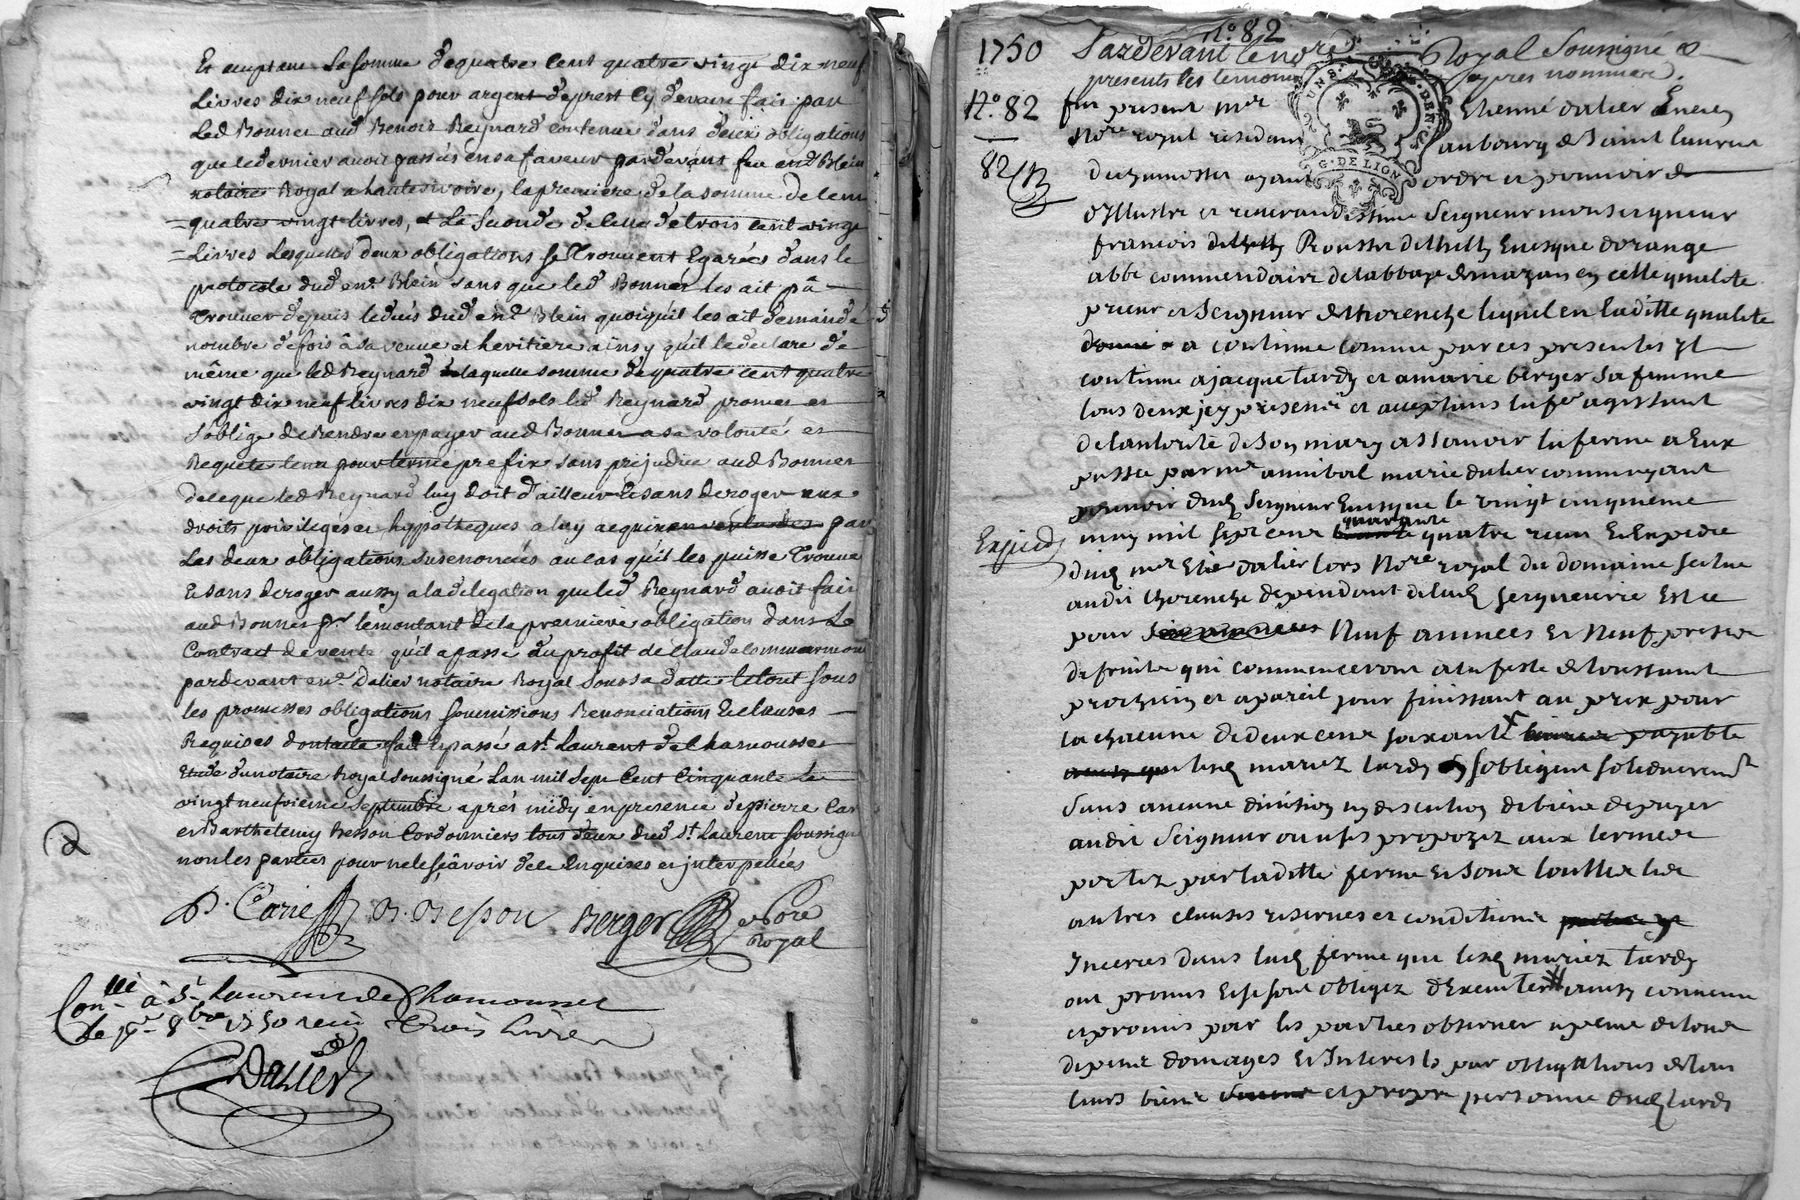 Et emprane la somme de quatre cent quatre vingt dix neuf
Livres dix neuf sols pour argent de prest cy devant fait par
Led Bonnet aud Benoit Reynard contenue dans deux obligations
que ce dernier avoit passés en sa faveur pardevant feu en.d Blein
notaire Royal a hauterivoire, la premiere de la somme de cent
quatre vingt livres, et La Seconde de celle de trois cent vingt
Livres Lesquelles deux obligations se trouvent Egarées dans le
protocole dud en.d Blein sans que led Bonnet les ait pû
trouver depuis le décés dud en.d Blein quoiquil les ait demandé
nombre de fois â sa veuve et heritiere ainsy quil le declare de
même que led Reynard laquelle somme de quatre cent quatre
vingt dix neuf livres dix neuf sols led Reynard promet et
s'oblige de Rendre et payer aud Bonnet a sa volonté et
Requete pour terme prefix sans prejudice aud Bonnet
de ce que led Reynard luy doit d'ailleur Et sans deroger aux
droits privileges et hypotheques a luy acquis par
Les deux obligations susenoncées au cas qu'il les puisse trouver
Et sans deroger aussy a la delegation que led Reynard avoit fait
aud Bonnet pr le montant de la premiere obligation dans Le
Contract de vente qu'il a passé au profit de Claude
pardevant en.d Dalier notaire Royal sous sa datte le tout sous
les promesses obligations soumissions Renonciations Et clauses
Requises dont acte fait Et passé a st Laurent de Chamousset
Etude du notaire Royal soussigné Lan mil sept cent cinquante le
vingt neufvieme septembre aprés midy en presence de pierre Car
et Barthelemy Besson Cordonniers tous deux dud st Laurent soussignés
non les parties pour ne le sçavoir de ce Enquises et interpellées
P. Carie B. Besson Berger Nore
Royal
Conlle â St Laurent de Chamousset
Le 1er 8bre 1750 recu trois Livres
Dalier
n° 82
1750 Pardevant le nore Royal soussigné &
presents les temoins apres nommez
N° 82 fut present mre Etienne dalier
Nore royal residant aubourg de Saint Laurent
82 de chamosset ayant ordre et pouvoir de
d'Illustre et reverandissime Seigneur monseigneur
francois de tilly Rousset de tilly Evesque dorange
abbe commendaire de labbaye de mazan en cette qualite
prieur et Seigneur de thorenche lequel en laditte qualite
a continue comme par ces presentes yl
continue a jacque tardy et a marie berger sa femme
tous deux jcy presents et aceptans la fe agissant
de lautorité de son mary a ssavoir la ferme a Eux
passée par mre annibal marie dalier commeayant
pouvoir dud Seigneur Evesque le vingt cinquieme
Expied may mil sept cent quarante quatre recu Et Expedie
dud mre Etie dalier lors Nore royal du domaine scitue
audit thorenche dependant de lad seigneurie Et ce
pour Neuf annees Et Neuf prises
de fruits qui commenceront a la feste de toussaint
prochain et a pareil jour finissant au prix pour
la chacune de deux cent soixante payable
lesd mariez tardy s'obligent solidairement
sans aucune division ny discution de biens de payer
audit Seigneur ou a ses preposez aux termes
portez par laditte ferme Et sous touttes les
autres clauses reserves et conditions
Incerées dans lad ferme que lesd mariez tardy
ont promis Et se sont obligez d'Executer ainsy convenu
et promis par les parties observer a peine de tous
depens domages Et Interests par obligations de tous
leurs biens et propre personne dud tardy